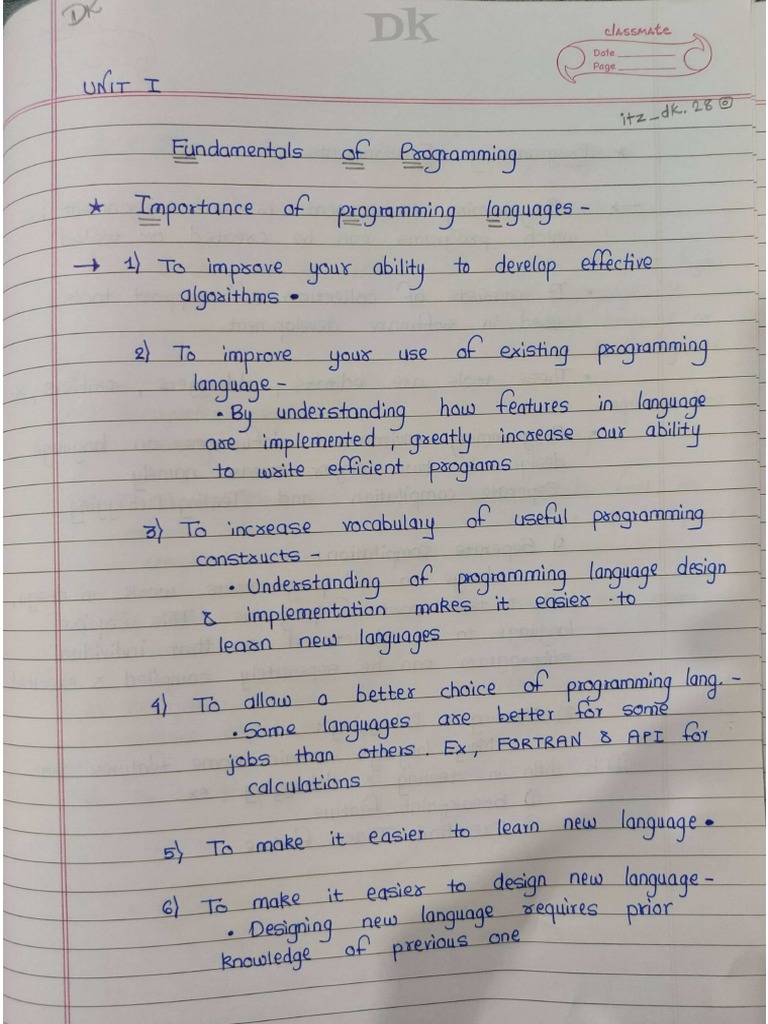 DK
DK
classmate
Date
Page
UNIT I
itz_dk.28
Fundamentals of Programming
* Importance of programming languages -
→ 1) To improve your ability to develop effective
algorithms.
2) To improve your use of existing programming
language -
• By understanding how features in language
are implemented, greatly increase our ability
to write efficient programs
3) To increase vocabulary of useful programming
constructs -
• Understanding of programming language design
& implementation makes it easier to
learn new languages
4) To allow a better choice of programming lang. -
• Some languages are better for some
jobs than others. Ex, FORTRAN & API for
calculations
5) To make it easier to learn new language.
6) To make it easier to design new language -
• Designing new language requires prior
knowledge of previous one